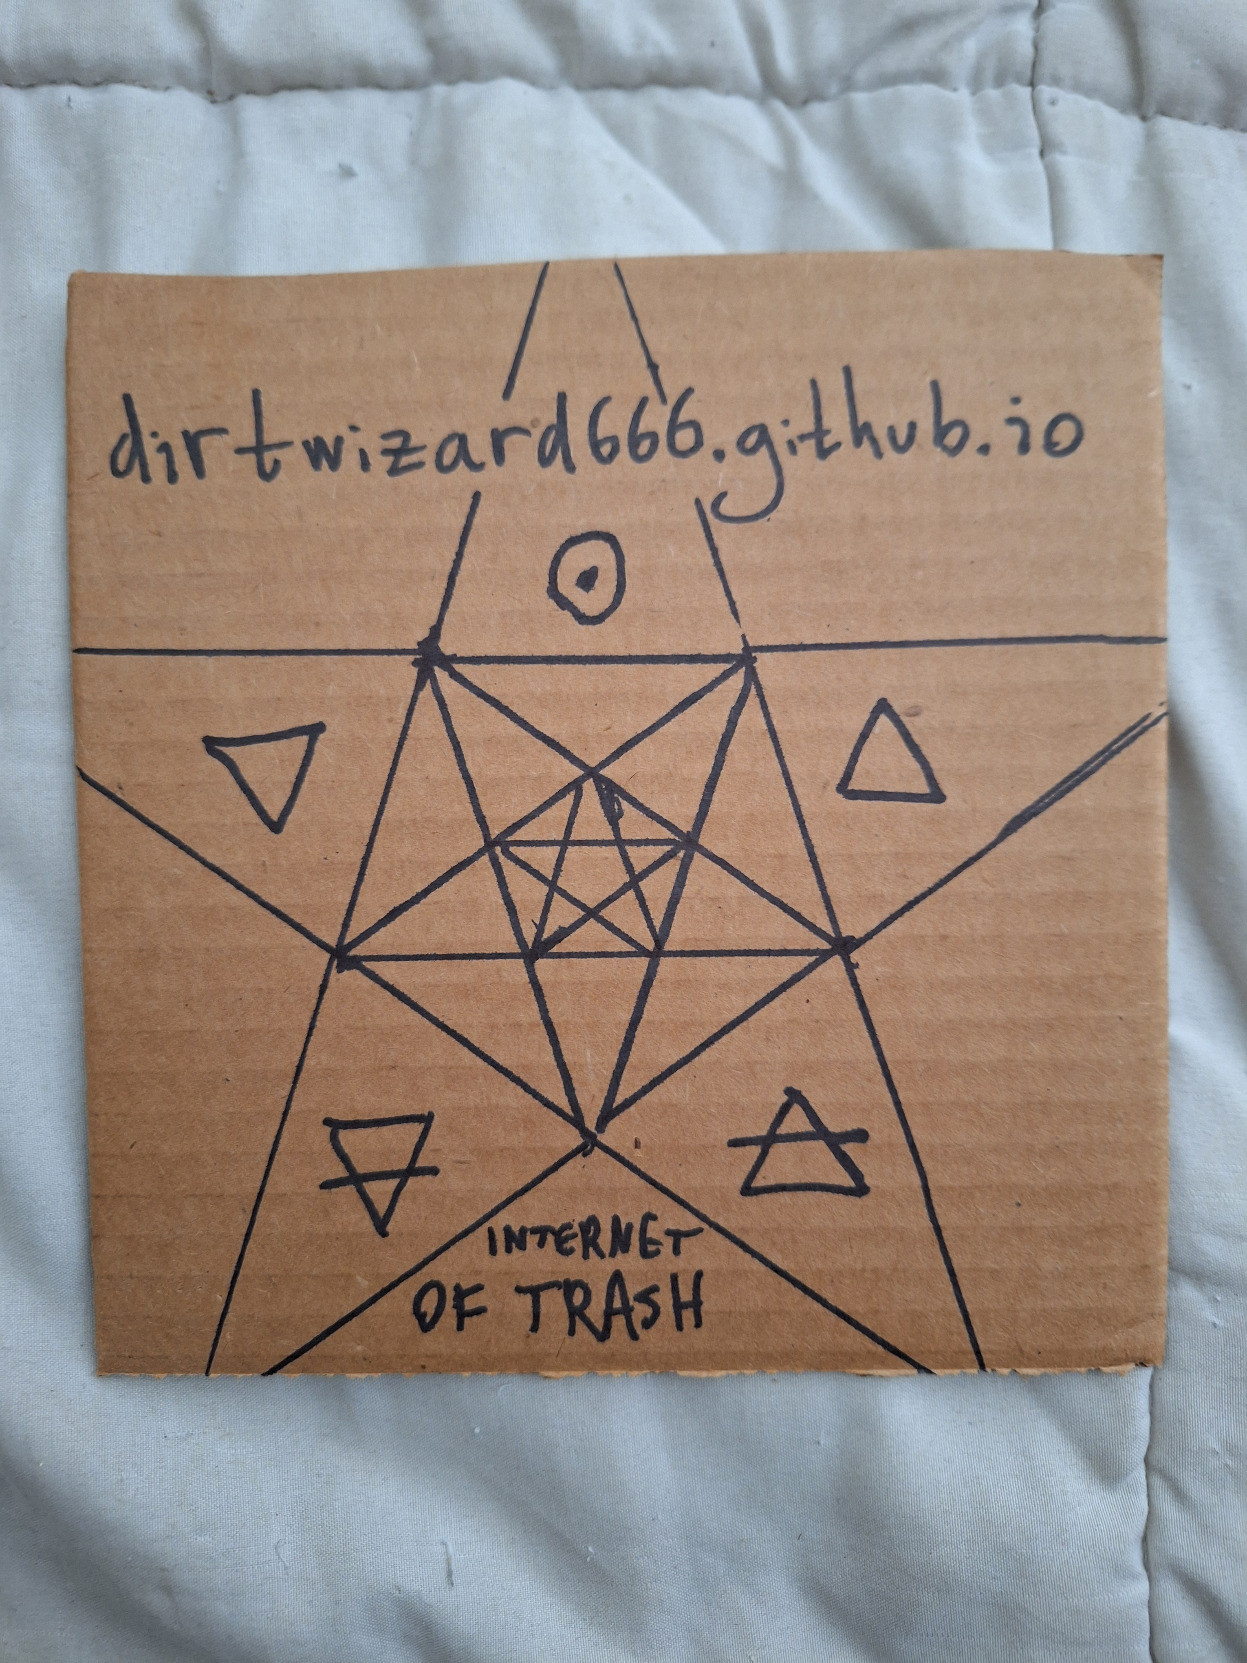 dirtwizard666.github.io
INTERNET
OF TRASH